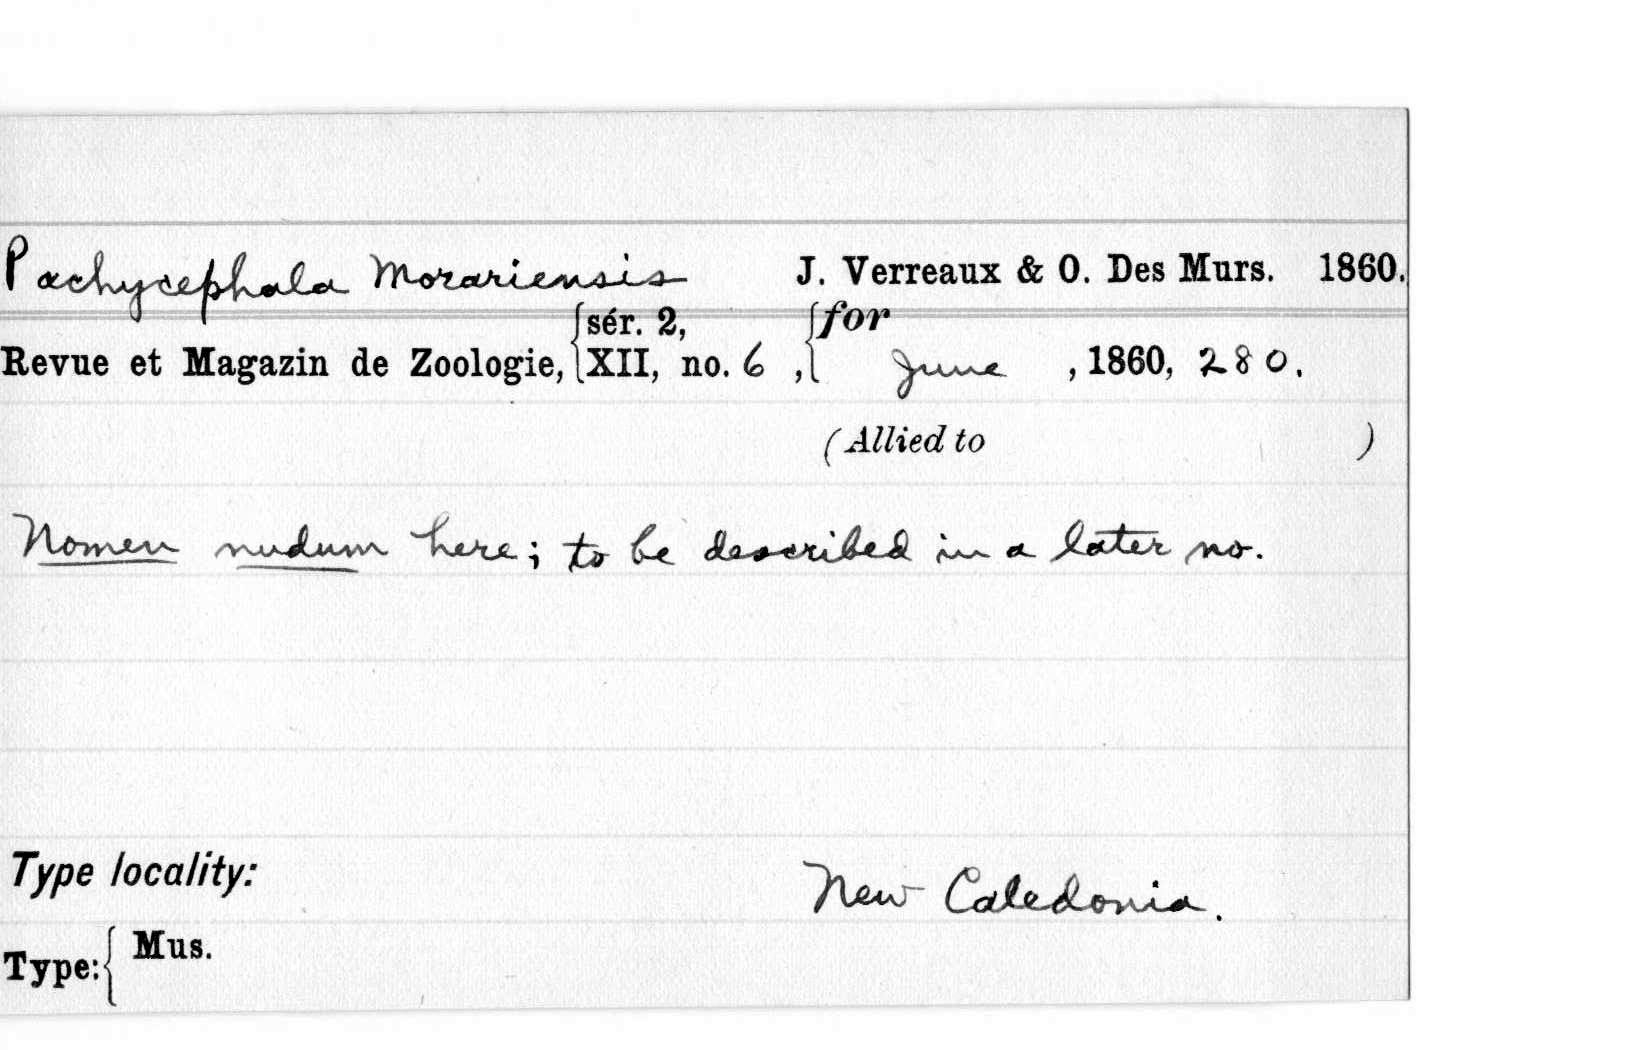 Pachycephala Morariensis J. Verreaux & O. Des Murs. 1860.
sér. 2, for
Revue et Magazin de Zoologie, XII, no. 6 , June , 1860, 280.
(Allied to )
Nomen nudum here; to be described in a later no.
Type locality: New Caledonia.
Type: Mus.